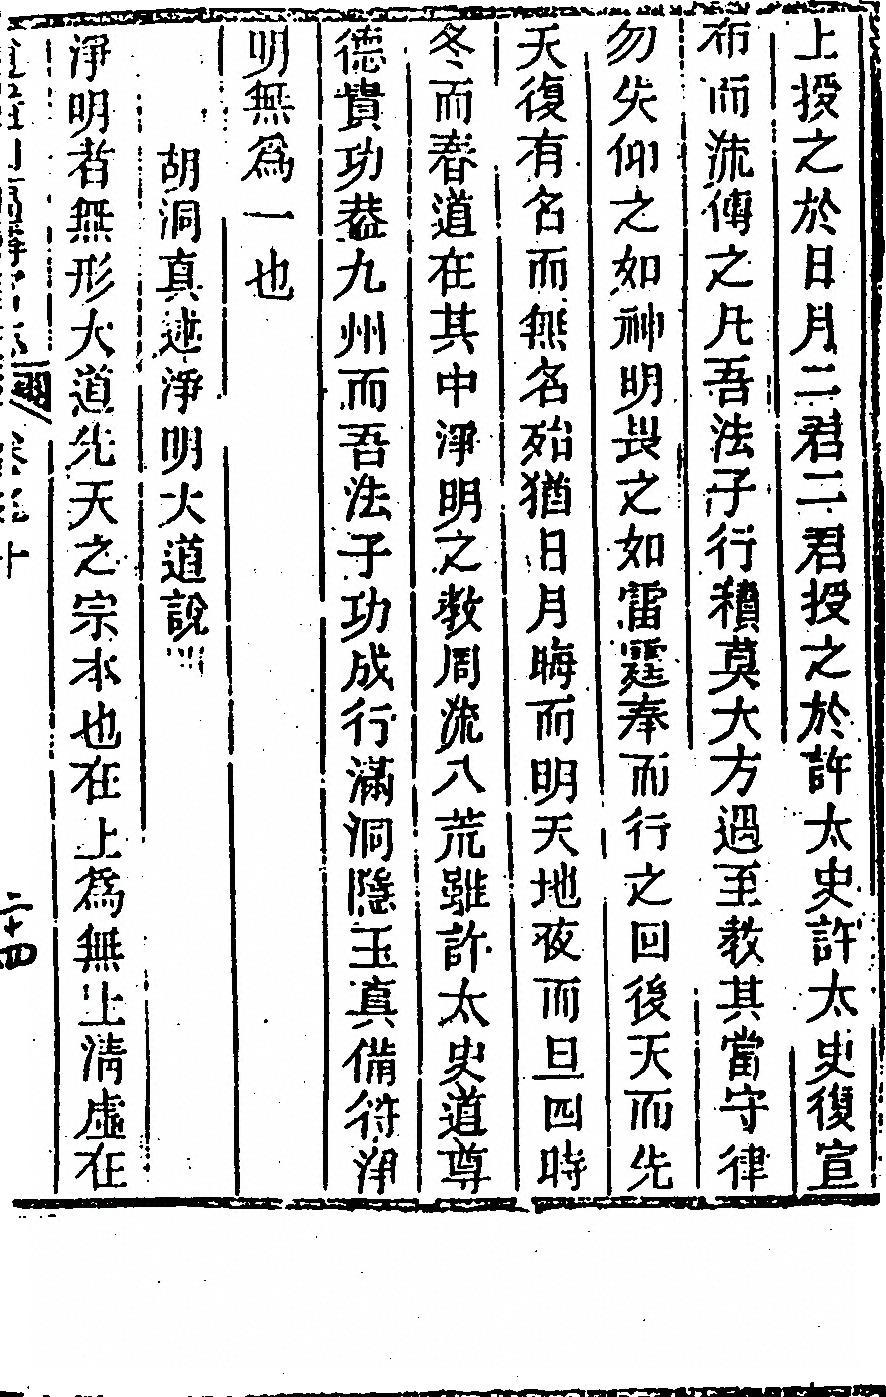 上授之於日月二君二君授之於許太史許太史復宣
布而流傳之凡吾法子行積莫大方遇至教其當守律
勿失仰之如神明畏之如雷霆奉而行之回後天而先
天復有名而無名殆猶日月晦而明天地夜而旦四時
冬而春道在其中淨明之教周流八荒雖許太史道尊
德貴功蓋九州而吾法子功成行滿洞隱玉真備符淨
明無為一也
胡洞真述淨明大道說
淨明者無形大道先天之宗本也在上為無上清虛在
二十四